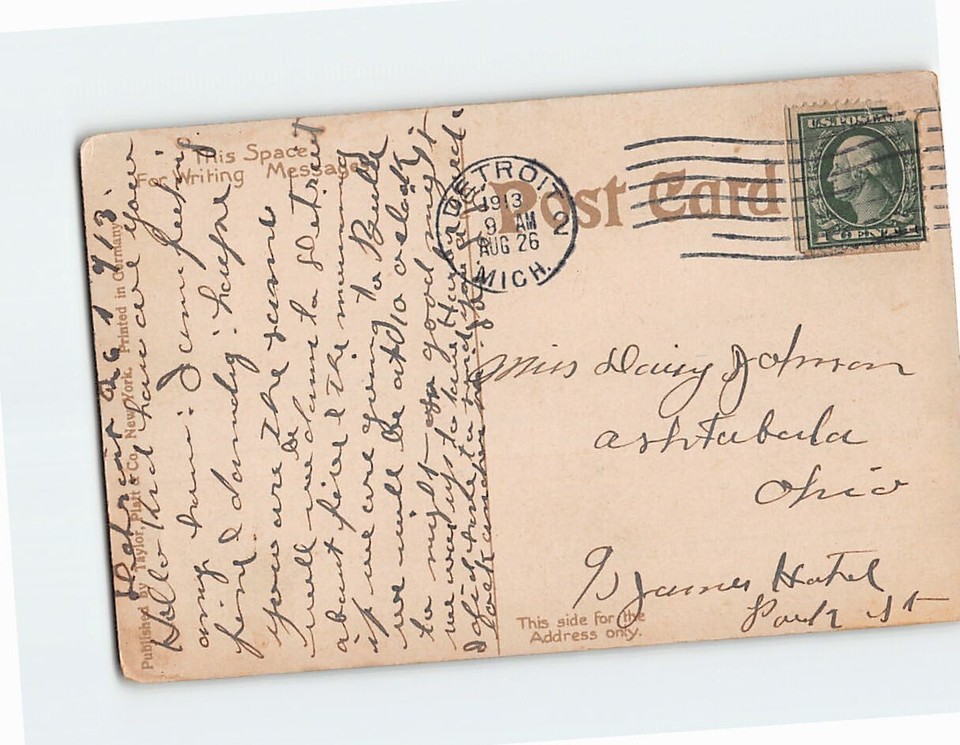 This Space
For Writing Messages
Post Card
DETROIT
1913
9 AM
AUG 26
2
MICH.
U.S. POSTAGE
1 CENT 1
Published by Taylor, Platt & Co. New York. Printed in Germany
Detroit 1913
Hello Kid how are you
any how: I am feeling
fine & dandy: hope
you are the same
well we came to Detroit
about five & the morning
if we are going to Buff
we will be at 10 oclock
to night good nyt
we was up to
I
Miss Daisy Johnson
ashtabula
Ohio
% James Hotel
Park St
This side for the
Address only.